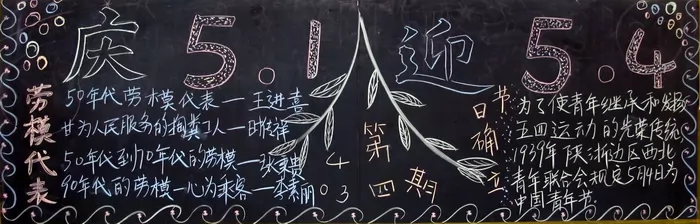 庆5.1迎5.4
劳模代表
50年代劳模代表——王进喜
甘为人民服务的掏粪工人——时传祥
50年代到70年代的劳模——张秉贵
90年代的劳模一心为乘客——李素丽
4
03
第四期
节日确立
为了使青年继承和发扬
五四运动的光荣传统
1939年陕浙边区西北
青年联合会规定5月4日为
中国青年节